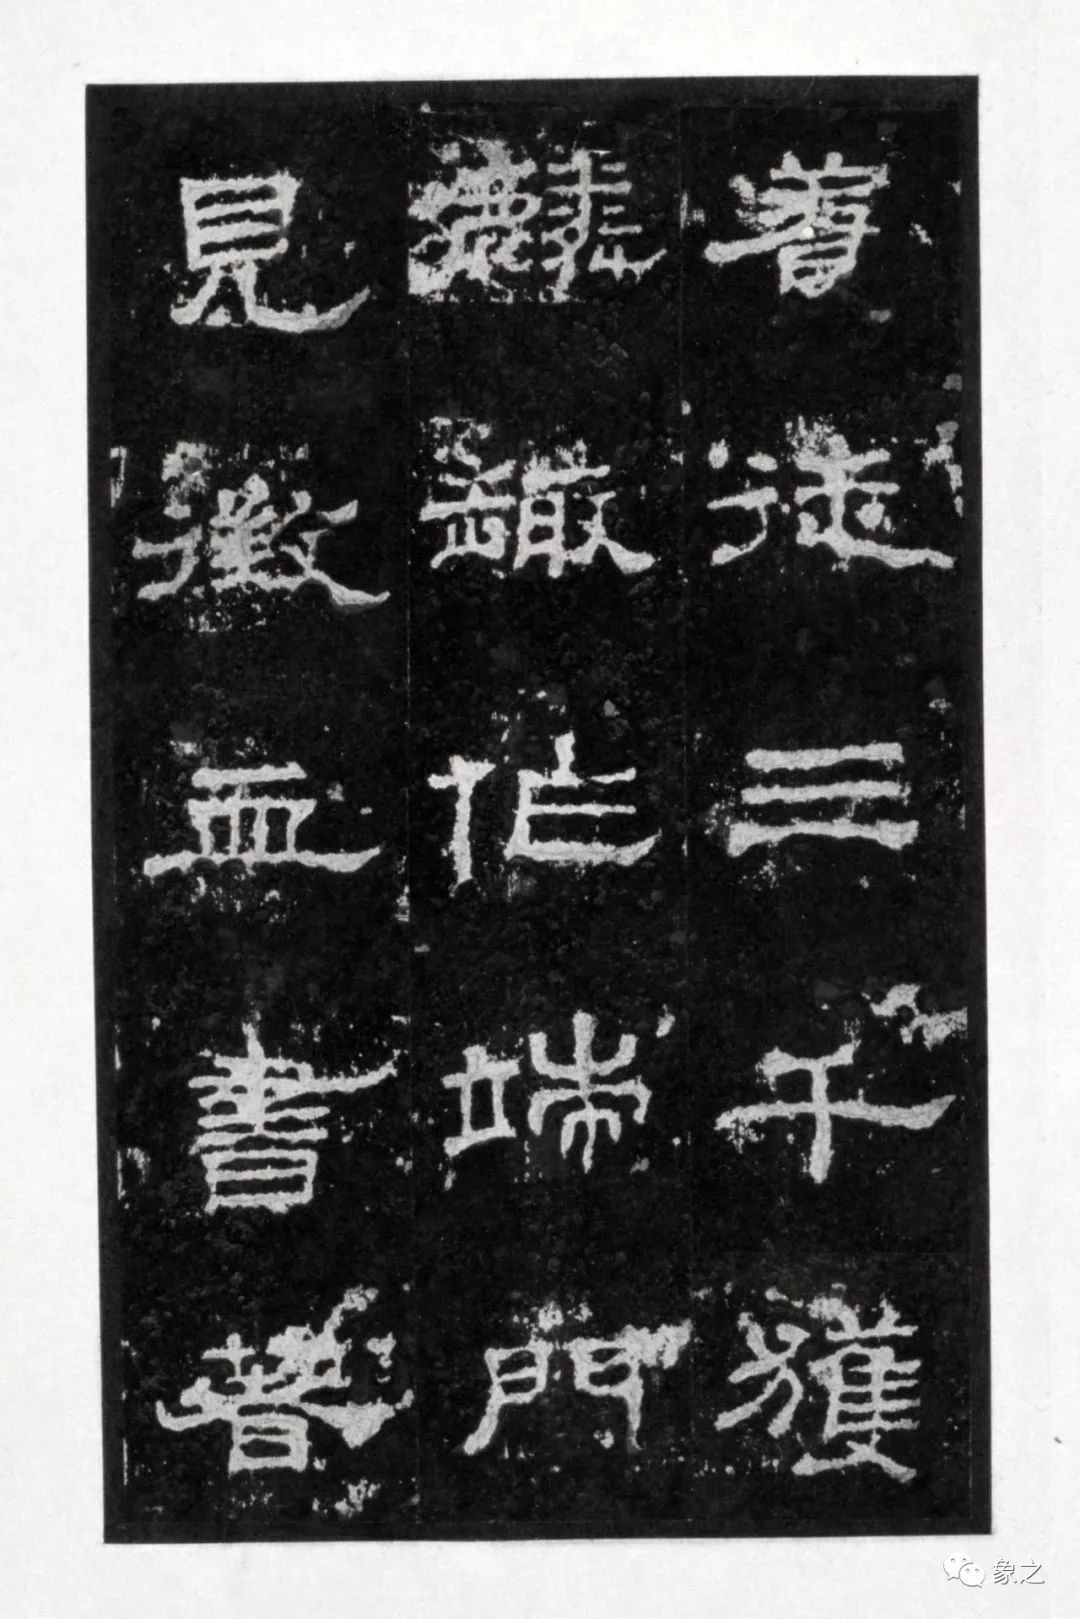 養徒三千獲
麟趣作端門
見徵血書著
象之